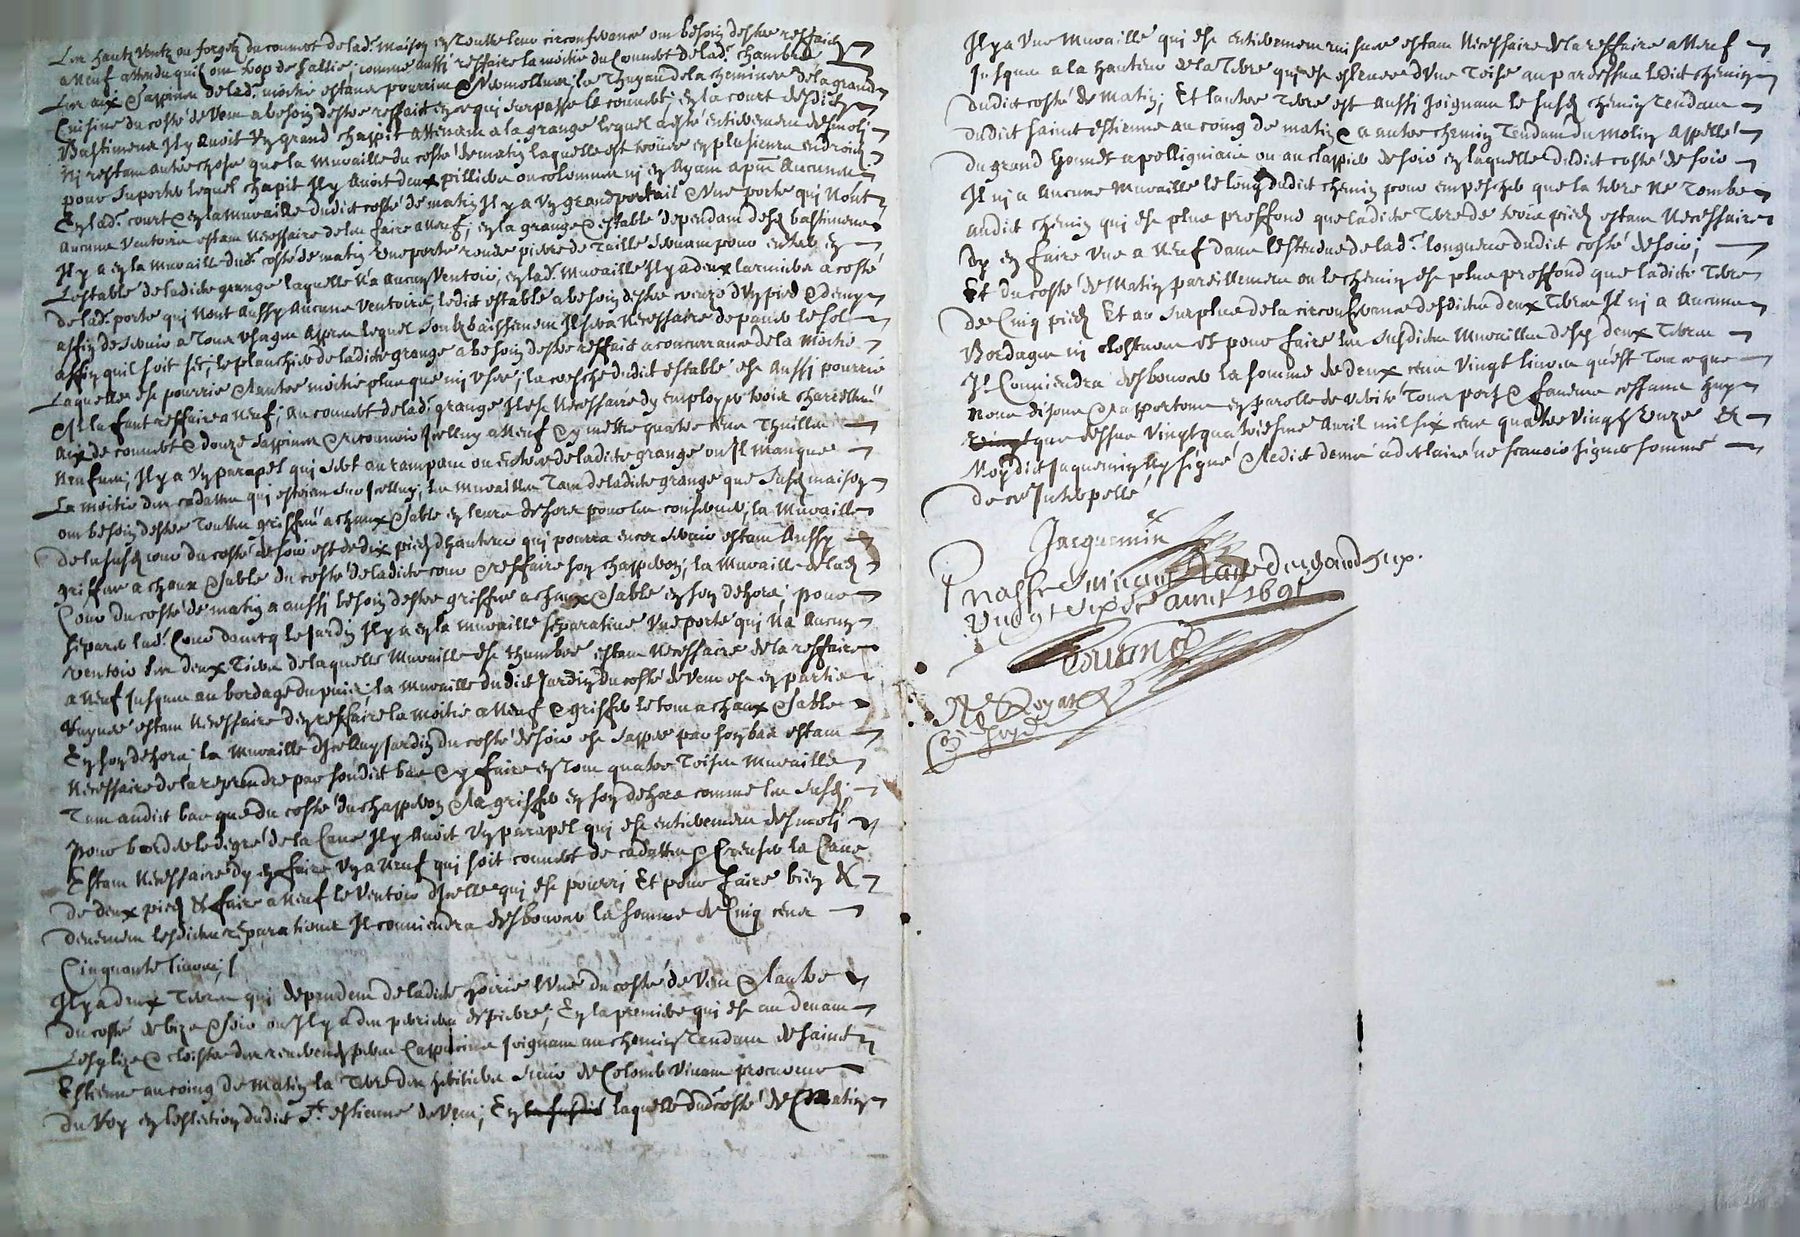 Les hautz ventz ou forgetz du couvert de lad.e maison en toutte leur circonferance ont besoin d'estre reffaictz
a neuf attendu qu'ilz ont trop de sallie; comme aussi reffaire la moitié du couvert de lad.e chambre,
Les aix sappines de lad.e moitié estans pourris & vermollues; le Thuyau de la cheminee de la grand
Cuisine du costé de vent a besoin d'estre reffait en ce qui surpasse le couvert; en la court desdictz
Bastimens Il y avoit un grand chappit attenant a la grange lequel a esté entierement desmoli
ny restant autre chose que la muraille du costé de matin laquelle est trouée en plusieurs endroictz
pour suporter lequel chapit Il y avoit deux pilliers ou colomnes ny en ayant a p̄nt aucune
En lad.e court & en la muraille dudict costé de matin Il y a un grand portail & une porte qui n'ont
aucune ventoire estant necessaire de les faire a neuf; en la grange & estable dependant desd. bastimens
Il y a en la muraille dud.t costé de matin une porte ronde pierre de taille servant pour entrer en
L'estable de ladicte grange laquelle n'a aucun ventoir; en lad.e muraille Il y a deux larmiers a costé
de lad.e porte qui n'ont aussy aucune ventoire; ledict estable a besoin d'estre creuzé d'un pied & demy
affin de servir a tous usages apres lequel soubzbaissement Il sera necessaire de paver le sol
affin qu'il soit sec; le planchir de ladicte grange a besoin d'estre reffait a concurrance de la moitié
Laquelle est pourrie & l'autre moitié plus que my usée; la cresche dudict estable est aussi pourrie
& la faut reffaire a neuf; au couvert de lad.e grange Il est necessaire d'y employer trois charretées
aix de couvert & douze sappines & recouvrir Icelluy a neuf & y mettre quatre cens Thuilles
neufves; Il y a un parapel qui sert au rampant ou entrée de ladicte grange ou Il manque
La moitié des cadattes qui estoient sur Icelluy; les murailles tant de ladicte grange que susd. maison
ont besoin d'estre touttes griffées a chaux & sable en leurs dehors pour les conserver; la muraille
de la susd. cour du costé de soir est de dix pieds d'hauteur qui pourra encor servir estant aussy
griffée a chaux & sable du costé de ladicte cour & reffaire son chapperon; la muraille de lad.
Cour du costé de matin a aussi besoin d'estre griffée a chaux & sable en son dehors; pour
separer lad.e cour d'avecq le jardin Il y a en la muraille separative une porte qui n'a aucun
ventoir les deux tiers de laquelle muraille est thumbée estant necessaire de la reffaire
a neuf jusques au bordage du puis; la muraille dudict jardin du costé de vent est en partie
ruynée estant necessaire d'en reffaire la moitié a neuf & griffer le tout a chaux & sable
En son dehors; la muraille d'Icelluy jardin du costé de soir est sappée par son bas estant
necessaire de la reprendre par sondict bas & y faire en tout quatre toises muraille
Tant audict bas que du costé du chapperon & la griffer en son dehors comme les susd.;
Pour border le degré de la cave Il y avoit un parapel qui est entierement desmoli
Estant necessaire d'y en faire un a neuf qui soit couvert de cadattes & creuser la cave
de deux pieds & faire a neuf le ventoir d'Icelle qui est pourri Et pour faire bien &
deuement lesdictes reparations Il conviendra desbourser la somme de cinq cens
Cinquante livres;
Il y a deux terres qui dependent de ladicte hoirie l'une du costé de vent & l'autre
du costé de bize & soir ou Il y a des perrieres de pierre; en la premiere qui est au devant
L'esglize & cloistre des reverendz peres Cappucins joignant au chemin tendant de Saint
Estienne au coing de matin la terre des heritiers sieur de Colomb vivant procureur
du Roy en l'eslection dudict S.t Estienne de vent; En la susdit laquelle dud costé de matin
Il y a une muraille qui est entierement ruisnée estant necessaire de la reffaire a neuf
jusques a la hauteur de la terre qui est eslevée d'une toise au pardessus ledict chemin
dudict costé de matin; Et l'autre terre est aussi joignant le susd. chemin tendant
dudict Saint Estienne au coing de matin & a autre chemin tendant du molin appellé
du grand Gonnet a polligniais ou au clappier de soir en laquelle dudict costé de soir
Il n'y a aucune muraille le long dudict chemin pour empescher que la terre ne tombe
audict chemin qui est plus proffond que ladicte terre de trois pieds estant necessaire
d'y en faire une a neuf dans l'estendue de lad.e longueur dudict costé de soir;
Et du costé de matin pareillement ou le chemin est plus proffond que ladicte terre
de cinq pieds Et au surplus de la circonferance desdictes deux terres Il n'y a aucune
Bordages ni closture et pour faire les susdictes murailles desd. deux terres
Il conviendra desbourser la somme de deux cens vingt livres qu'est tout ce que
nous disons & rapportons en parolle de verité tous port & faveurs cessans huy
vingt que dessus vingt quatriesme avril mil six cens quatre vingtz unze &
Moy dict Jaquemin ay signé & ledict demié a declairé ne scavoir signer sommé
de ce Interpellé
Jacquemin